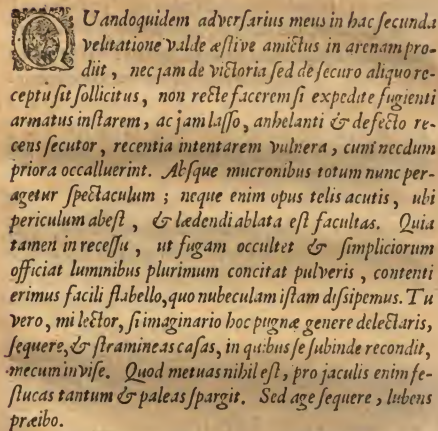 QUandoquidem adverſarius meus in hac ſecunda
velitatione valde æſtive amictus in arenam pro-
diit, nec jam de victoria ſed de ſecuro aliquo re-
ceptu ſit ſollicitus, non recte facerem ſi expedite fugienti
armatus inſtarem, ac jam laſſo, anhelanti & defecto re-
cens ſecutor, recentia intentarem vulnera, cum necdum
priora occalluerint. Abſque mucronibus totum nunc per-
agetur ſpectaculum ; neque enim opus telis acutis, ubi
periculum abeſt, & lædendi ablata eſt facultas. Quia
tamen in receſſu, ut fugam occultet & ſimpliciorum
officiat luminibus plurimum concitat pulveris, contenti
erimus facili flabello, quo nubeculam iſtam diſsipemus. Tu
vero, mi lector, ſi imaginario hoc pugnæ genere delectaris,
ſequere, & ſtramineas caſas, in quibus ſe ſubinde recondit,
mecum inviſe. Quod metuas nihil eſt, pro jaculis enim fe-
ſtucas tantum & paleas ſpargit. Sed age ſequere, lubens
præibo.